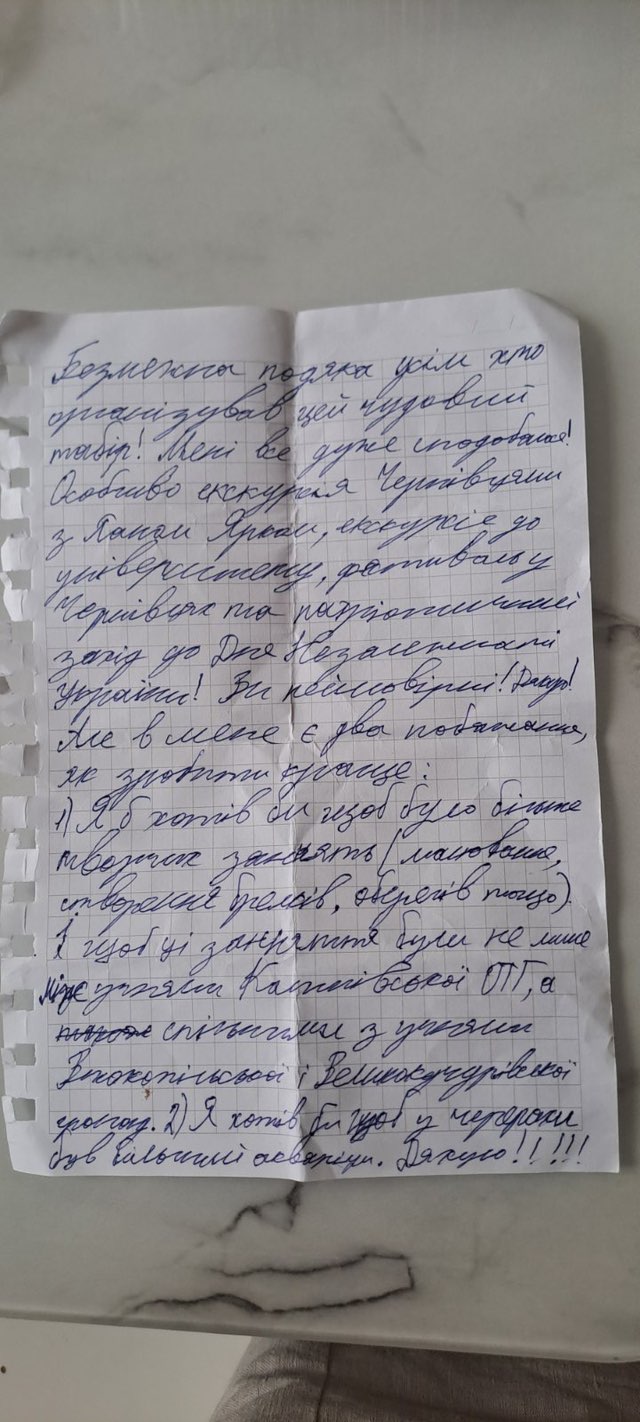 Безмежна подяка усім хто
організував цей чудовий
табір! Мені все дуже сподобалося!
Особливо екскурсія Чернівцями
з Паном Ярком, екскурсія до
університету, фестиваль у
Чернівцях та патріотичний
захід до Дня Незалежності
України! Ви неймовірні! Дякую!
Але в мене є два побажання,
як зробити краще:
1) Я б хотів би щоб було більше
творчих занять (малювання,
створення брелків, оберегів тощо).
І щоб ці заняття були не лише
між учнями Кам'янської ОТГ, а
спільними з учнями
і Великокучурівської
громад. 2) Я хотів би щоб у черепахи
був більший акваріум. Дякую!!!!!